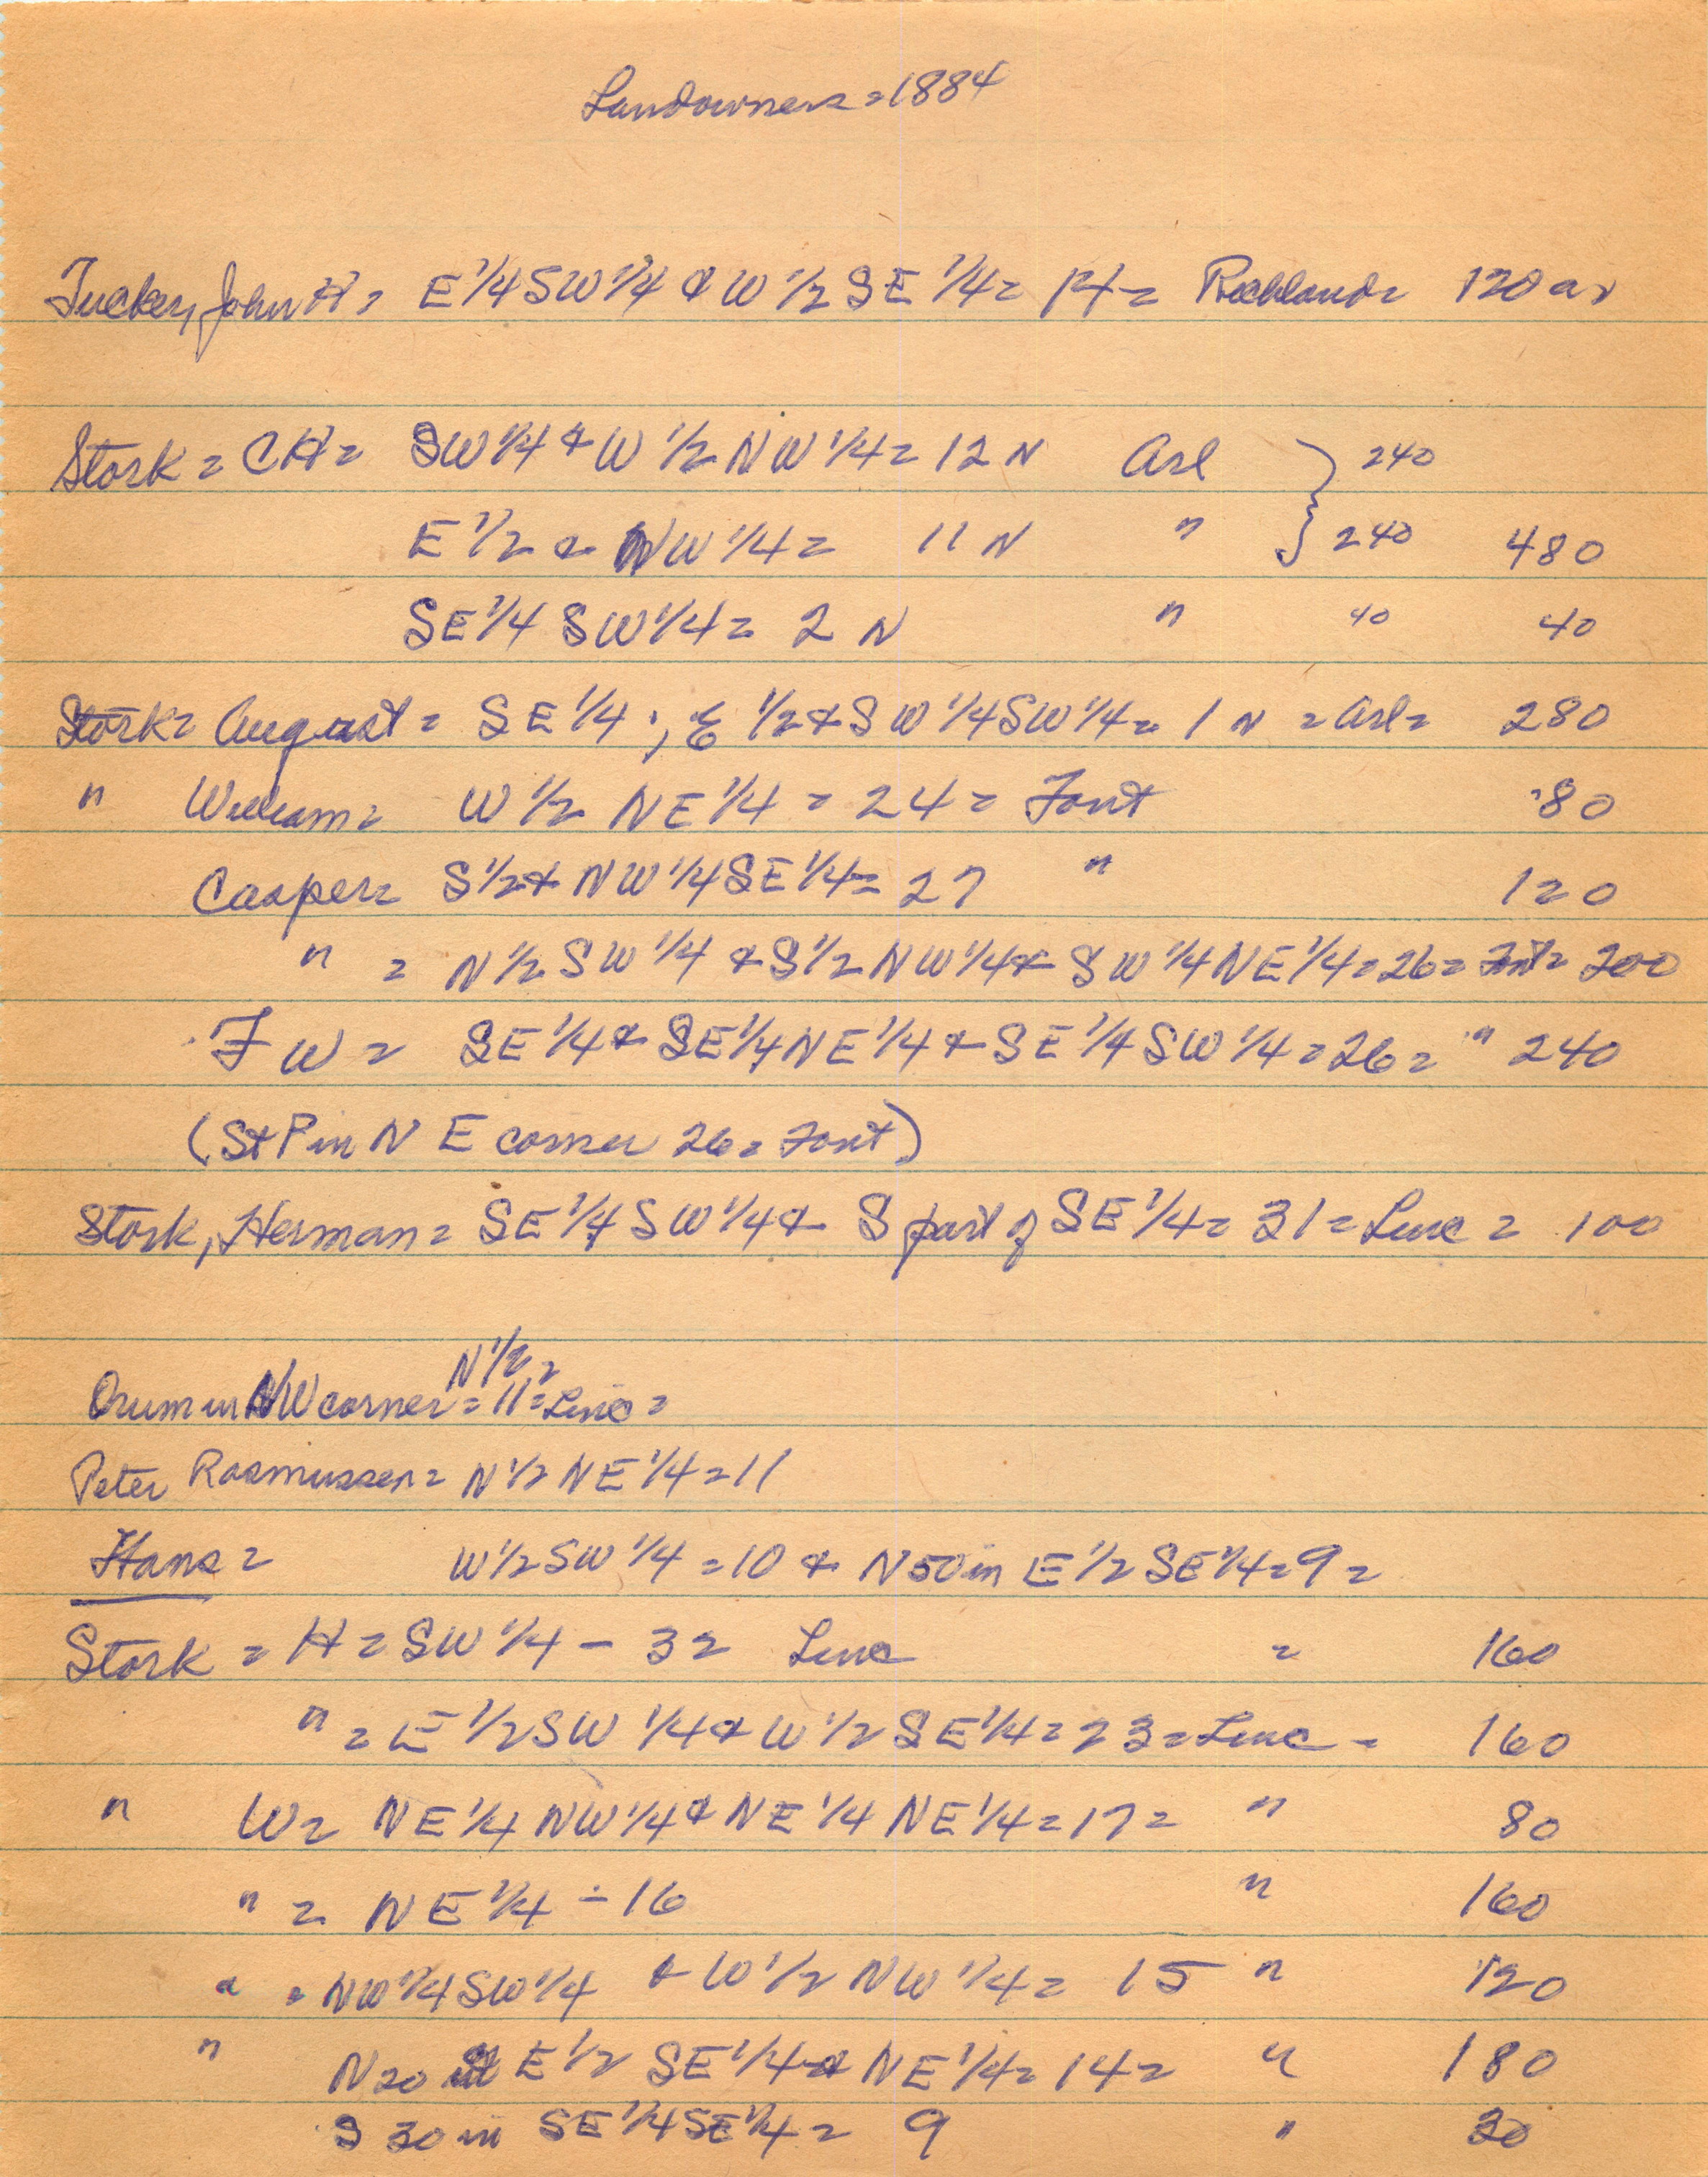 Landowners = 1884
Tucker, John H = E 1/4 SW 1/4 & W 1/2 SE 1/4 = 14 = Richland = 120 ar
Stork = CH = SW 1/4 & W 1/2 NW 1/4 = 12 N Arl } 240
E 1/2 & NW 1/4 = 11 N " } 240 480
SE 1/4 SW 1/4 = 2 N " 40 40
Stork = August = SE 1/4 ; E 1/2 & SW 1/4 SW 1/4 = 1 N = Arl = 280
" William = W 1/2 NE 1/4 = 24 = Font 80
Casper = S 1/2 & NW 1/4 SE 1/4 = 27 " 120
" = N 1/2 SW 1/4 & S 1/2 NW 1/4 & SW 1/4 NE 1/4 = 26 = Font = 200
F W = SE 1/4 & SE 1/4 NE 1/4 & SE 1/4 SW 1/4 = 26 = " 240
(St P in N E corner 26 = Font)
Stork, Herman = SE 1/4 SW 1/4 & S part of SE 1/4 = 31 = Linc = 100
N 1/2 =
Orum in NW corner = 11 = Linc =
Peter Rasmussen = N 1/2 NE 1/4 = 11
Hans = W 1/2 SW 1/4 = 10 & N 50 in E 1/2 SE 1/4 = 9 =
Stork = H = SW 1/4 - 32 Linc = 160
" = E 1/2 SW 1/4 & W 1/2 SE 1/4 = 23 = Linc = 160
" W = NE 1/4 NW 1/4 & NE 1/4 NE 1/4 = 17 = " 80
" = NE 1/4 - 16 " 160
" = NW 1/4 SW 1/4 & W 1/2 NW 1/4 = 15 " 120
" N 20 E 1/2 SE 1/4 & NE 1/4 = 14 = " 180
S 30 in SE 1/4 SE 1/4 = 9 " 30